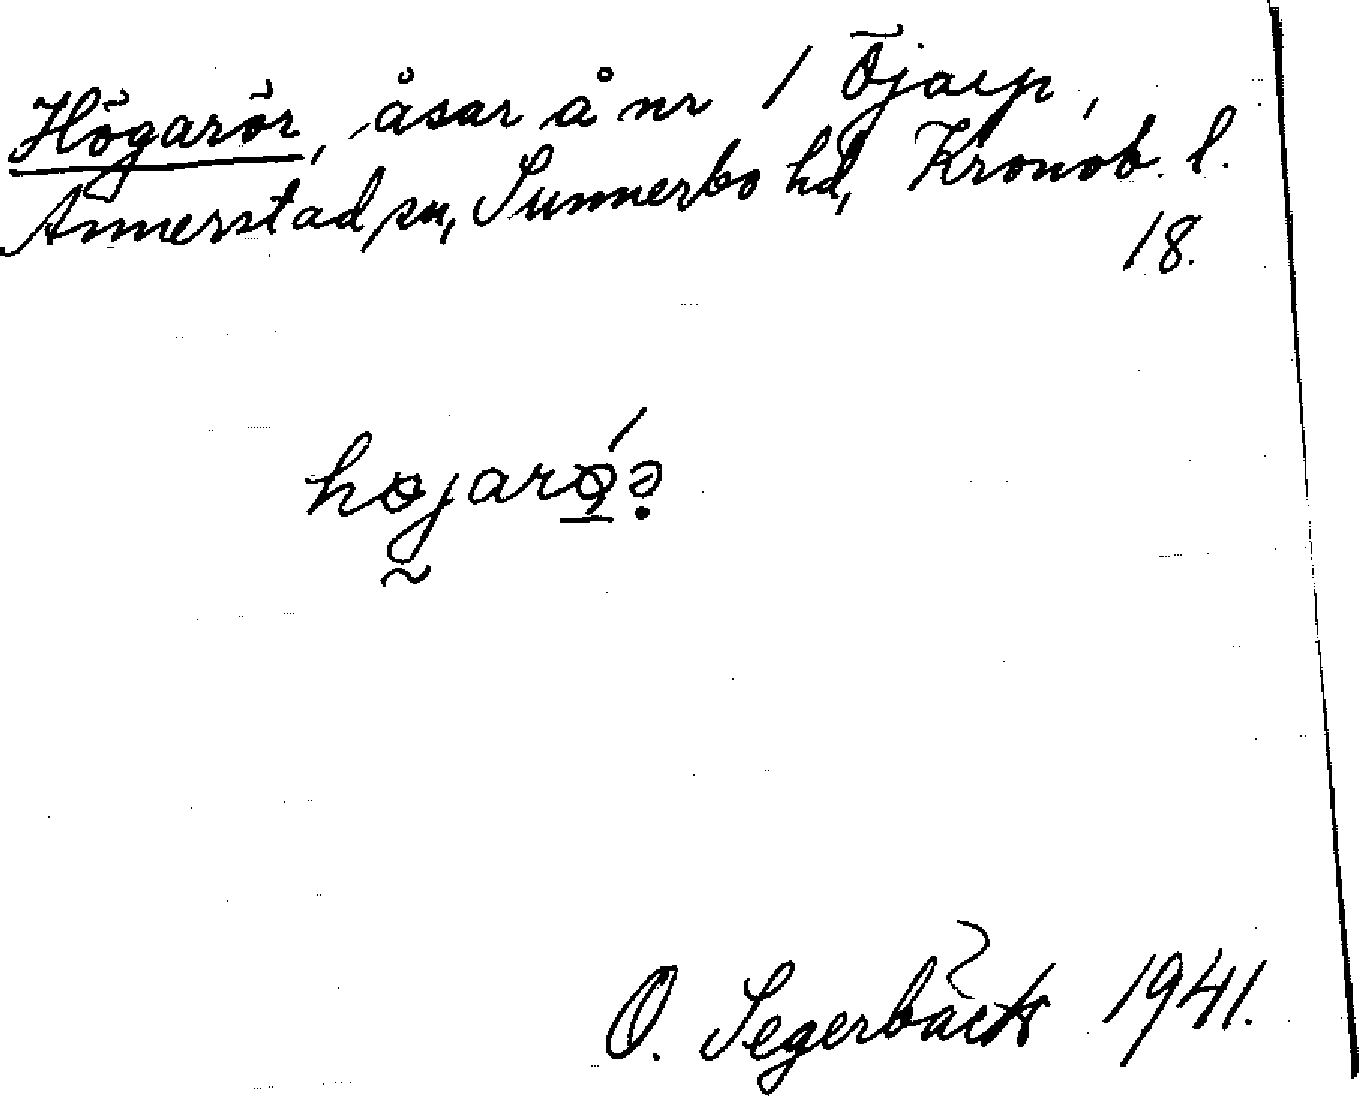 Högarör, åsar å nr 1 Öjarp,
Annerstad sn, Sunnerbo hd, Kronob. l.
18.
højarǿ̱ə̣
O. Segerbäck 1941.